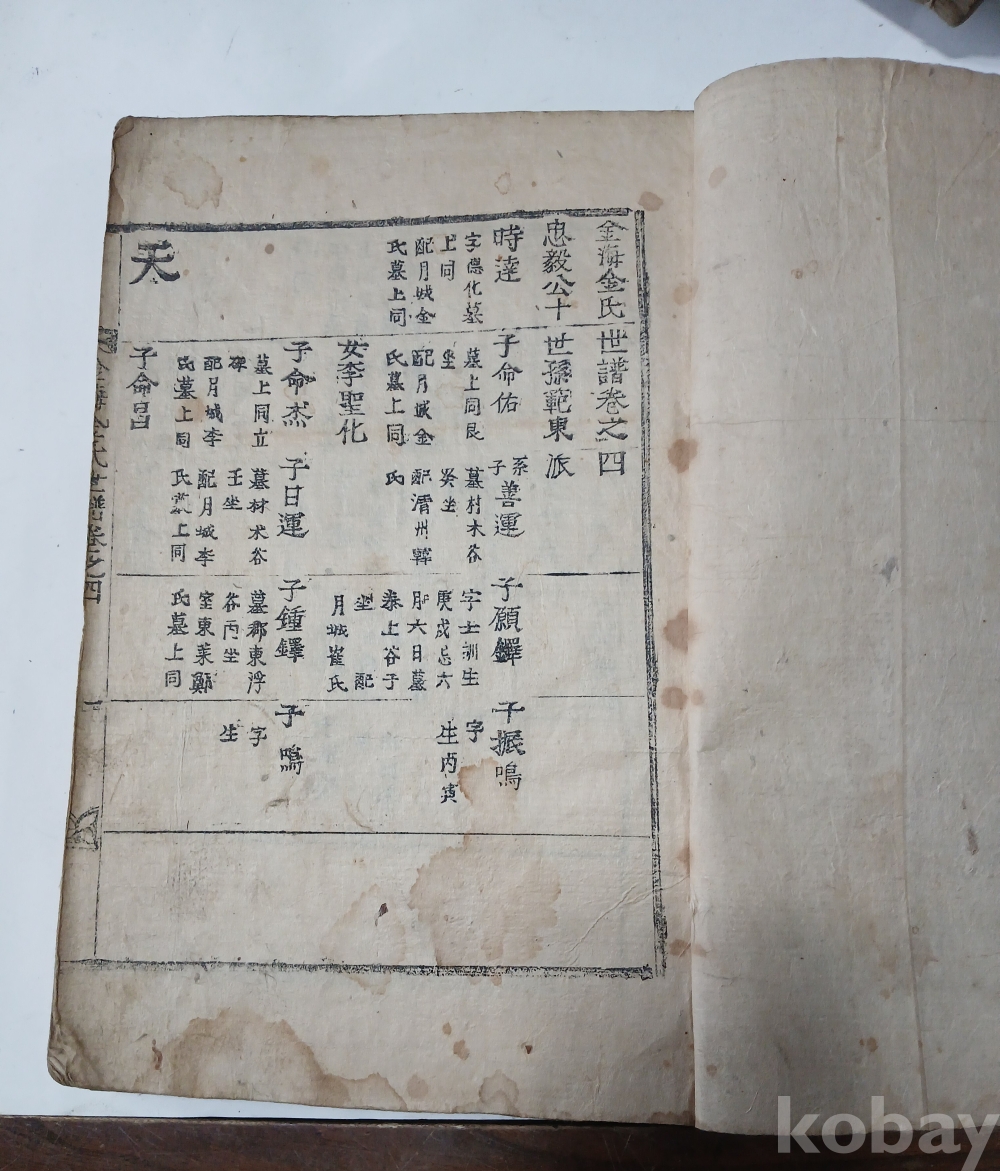 金海金氏世譜卷之四
忠毅公十世孫範東派
時達
字德化墓
上同
配月城金
氏墓上同
天
子命佑
墓上同艮
坐
配月城金
氏墓上同
女李聖化
子命杰
墓上同立
碑
配月城李
氏墓上同
子命昌
系子善運
墓村木谷
癸坐
配淸州韓
氏
子日運
墓材木谷
壬坐
配月城李
氏墓上同
子願鐸
字士訓生
庚戌忌六
月六日墓
泰上谷子
坐 配
月城崔氏
子鍾鐸
墓郡東浮
谷丙坐
室東萊鄭
氏墓上同
子振鳴
字
生丙寅
子 鳴
字
生
金海金氏世譜卷之四
一
kobay